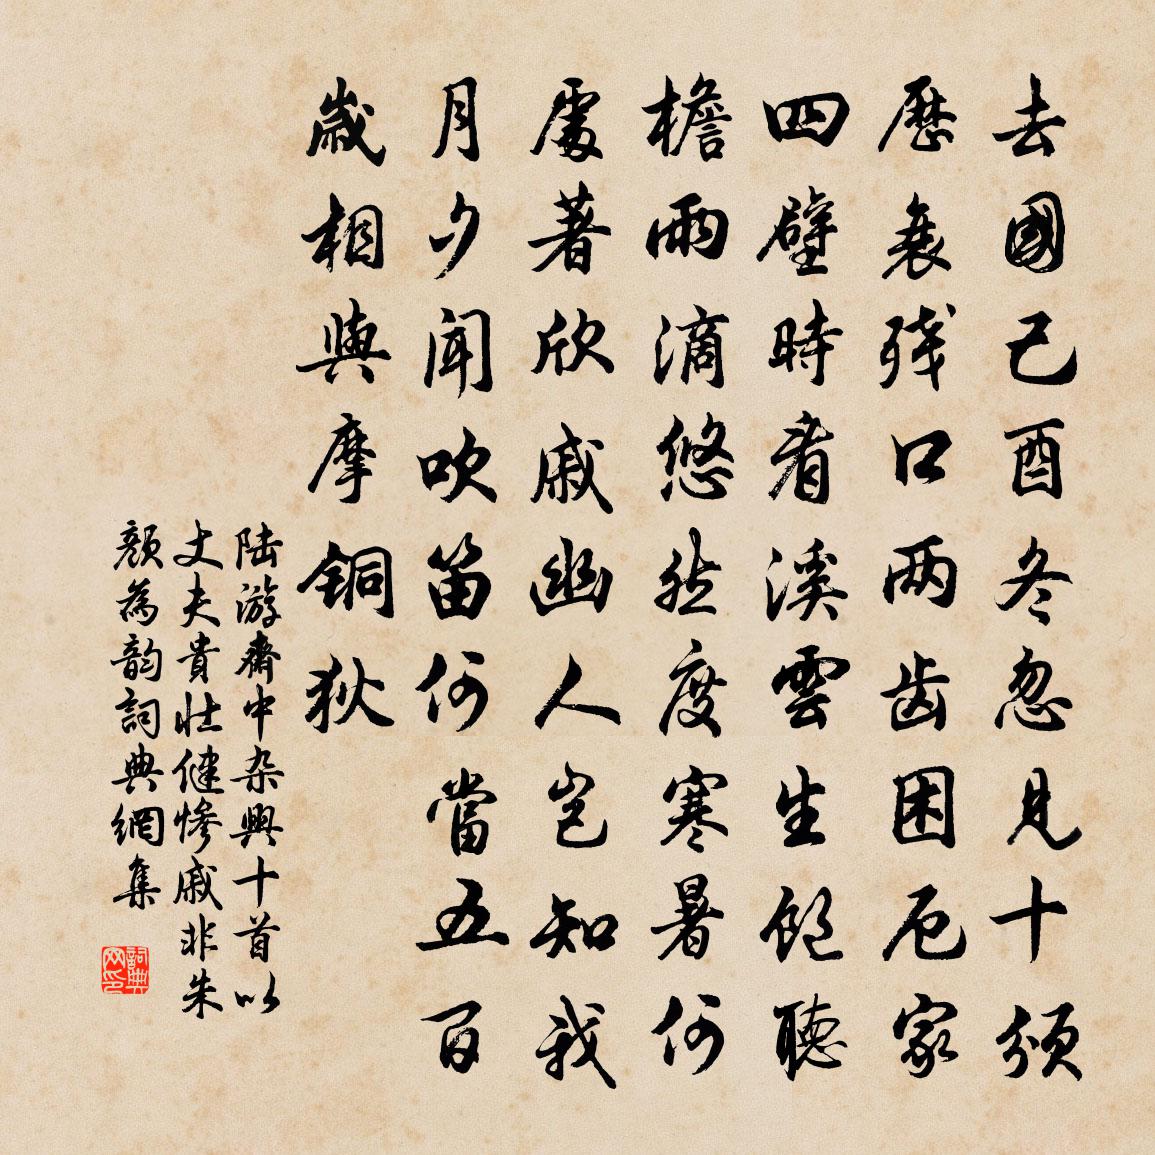 去國己酉冬忽見十頒
歷衰残口两齿困厄家
四壁時看溪雲生飽聽
檐雨滴悠然度寒暑何
處著欣戚幽人岂知我
月夕聞吹笛何當五百
歲相與摩銅狄
陆游齋中杂興十首以
丈夫貴壯健慘戚非朱
顏為韵詞典網集
詞典
网印